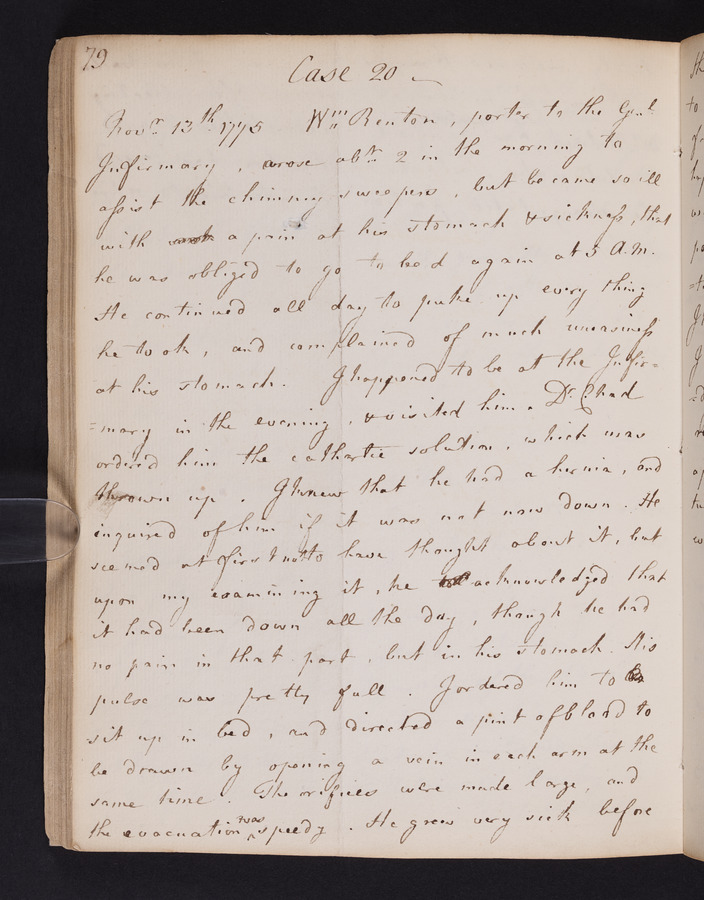 79
Case 20
Novr. 13th. 1775 Wm. Renton, porter to the Genl.
Infirmary, arose abt. 2 in the morning to
assist the chimney sweepers, but became so ill
with a pain at his stomach & sickness, that
he was obliged to go to bed again at 5 A.M.
He continued all day to puke up every thing
he took, and complained of much uneasiness
at his stomach. I happened to be at the Infir=
=mary in the evening, & visited him. Dr. Chad
ordered him the cathartic solution, which was
thrown up. I knew that he had a hernia, and
inquired of him if it was not now down. He
seemed at first not to have thought about it, but
upon my examining it, he acknowledged that
it had been down all the day, though he had
no pain in that part, but in his stomach. His
pulse was pretty full. I ordered him to
sit up in bed, and directed a pint of blood to
be drawn by opening a vein in each arm at the
same time. The orifices were made large, and
the evacuation was speedy. He grew very sick before